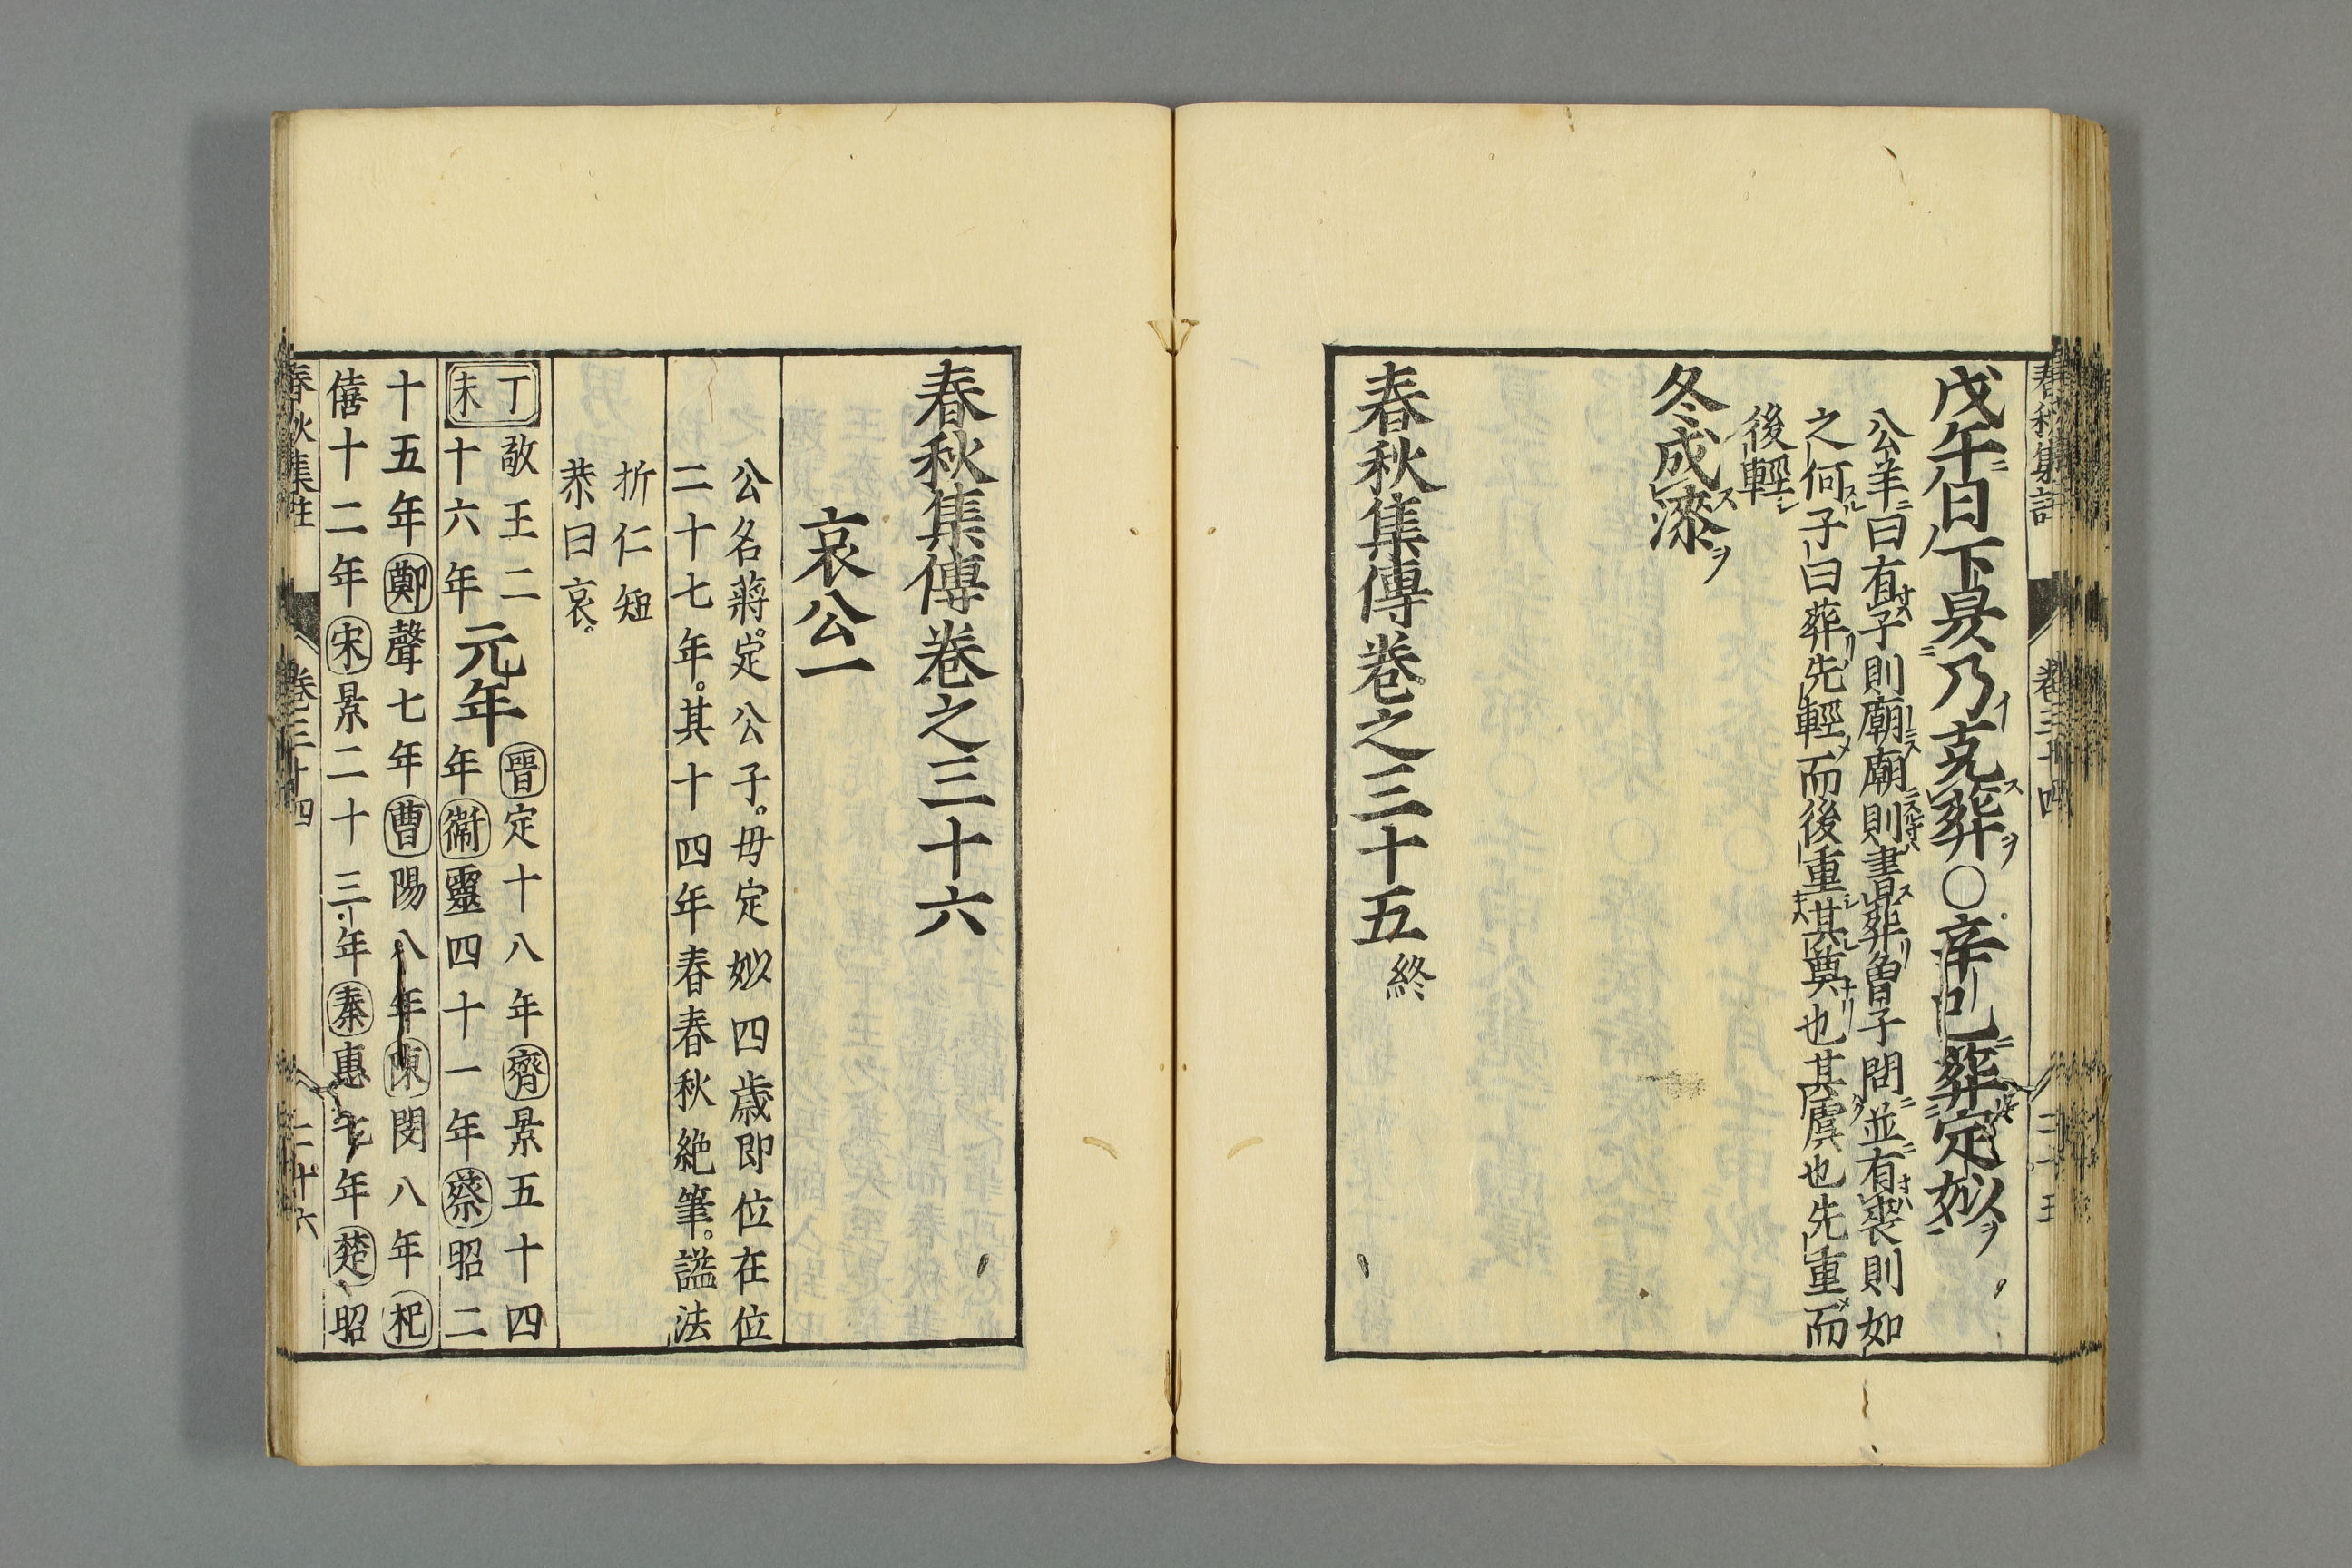 戊午日下昃乃克葬○辛巳葬定姒
公羊曰有子則廟廟則書葬曾子問並有喪則如
之何子曰葬先輕而後重其奠也其虞也先重而
後輕
冬城漆
春秋集傳卷之三十五終
春秋集傳卷之三十六
哀公一
公名蔣定公子母定姒四歳即位在位
二十七年其十四年春春秋絶筆謚法
折仁短
恭曰哀
丁未敬王二十六年元年晉定十八年齊景五十四
年衞靈四十一年蔡昭二
十五年鄭聲七年曹陽八年陳閔八年杞
僖十二年宋景二十三年秦惠七年楚昭
春秋集註 卷三十四 二十六